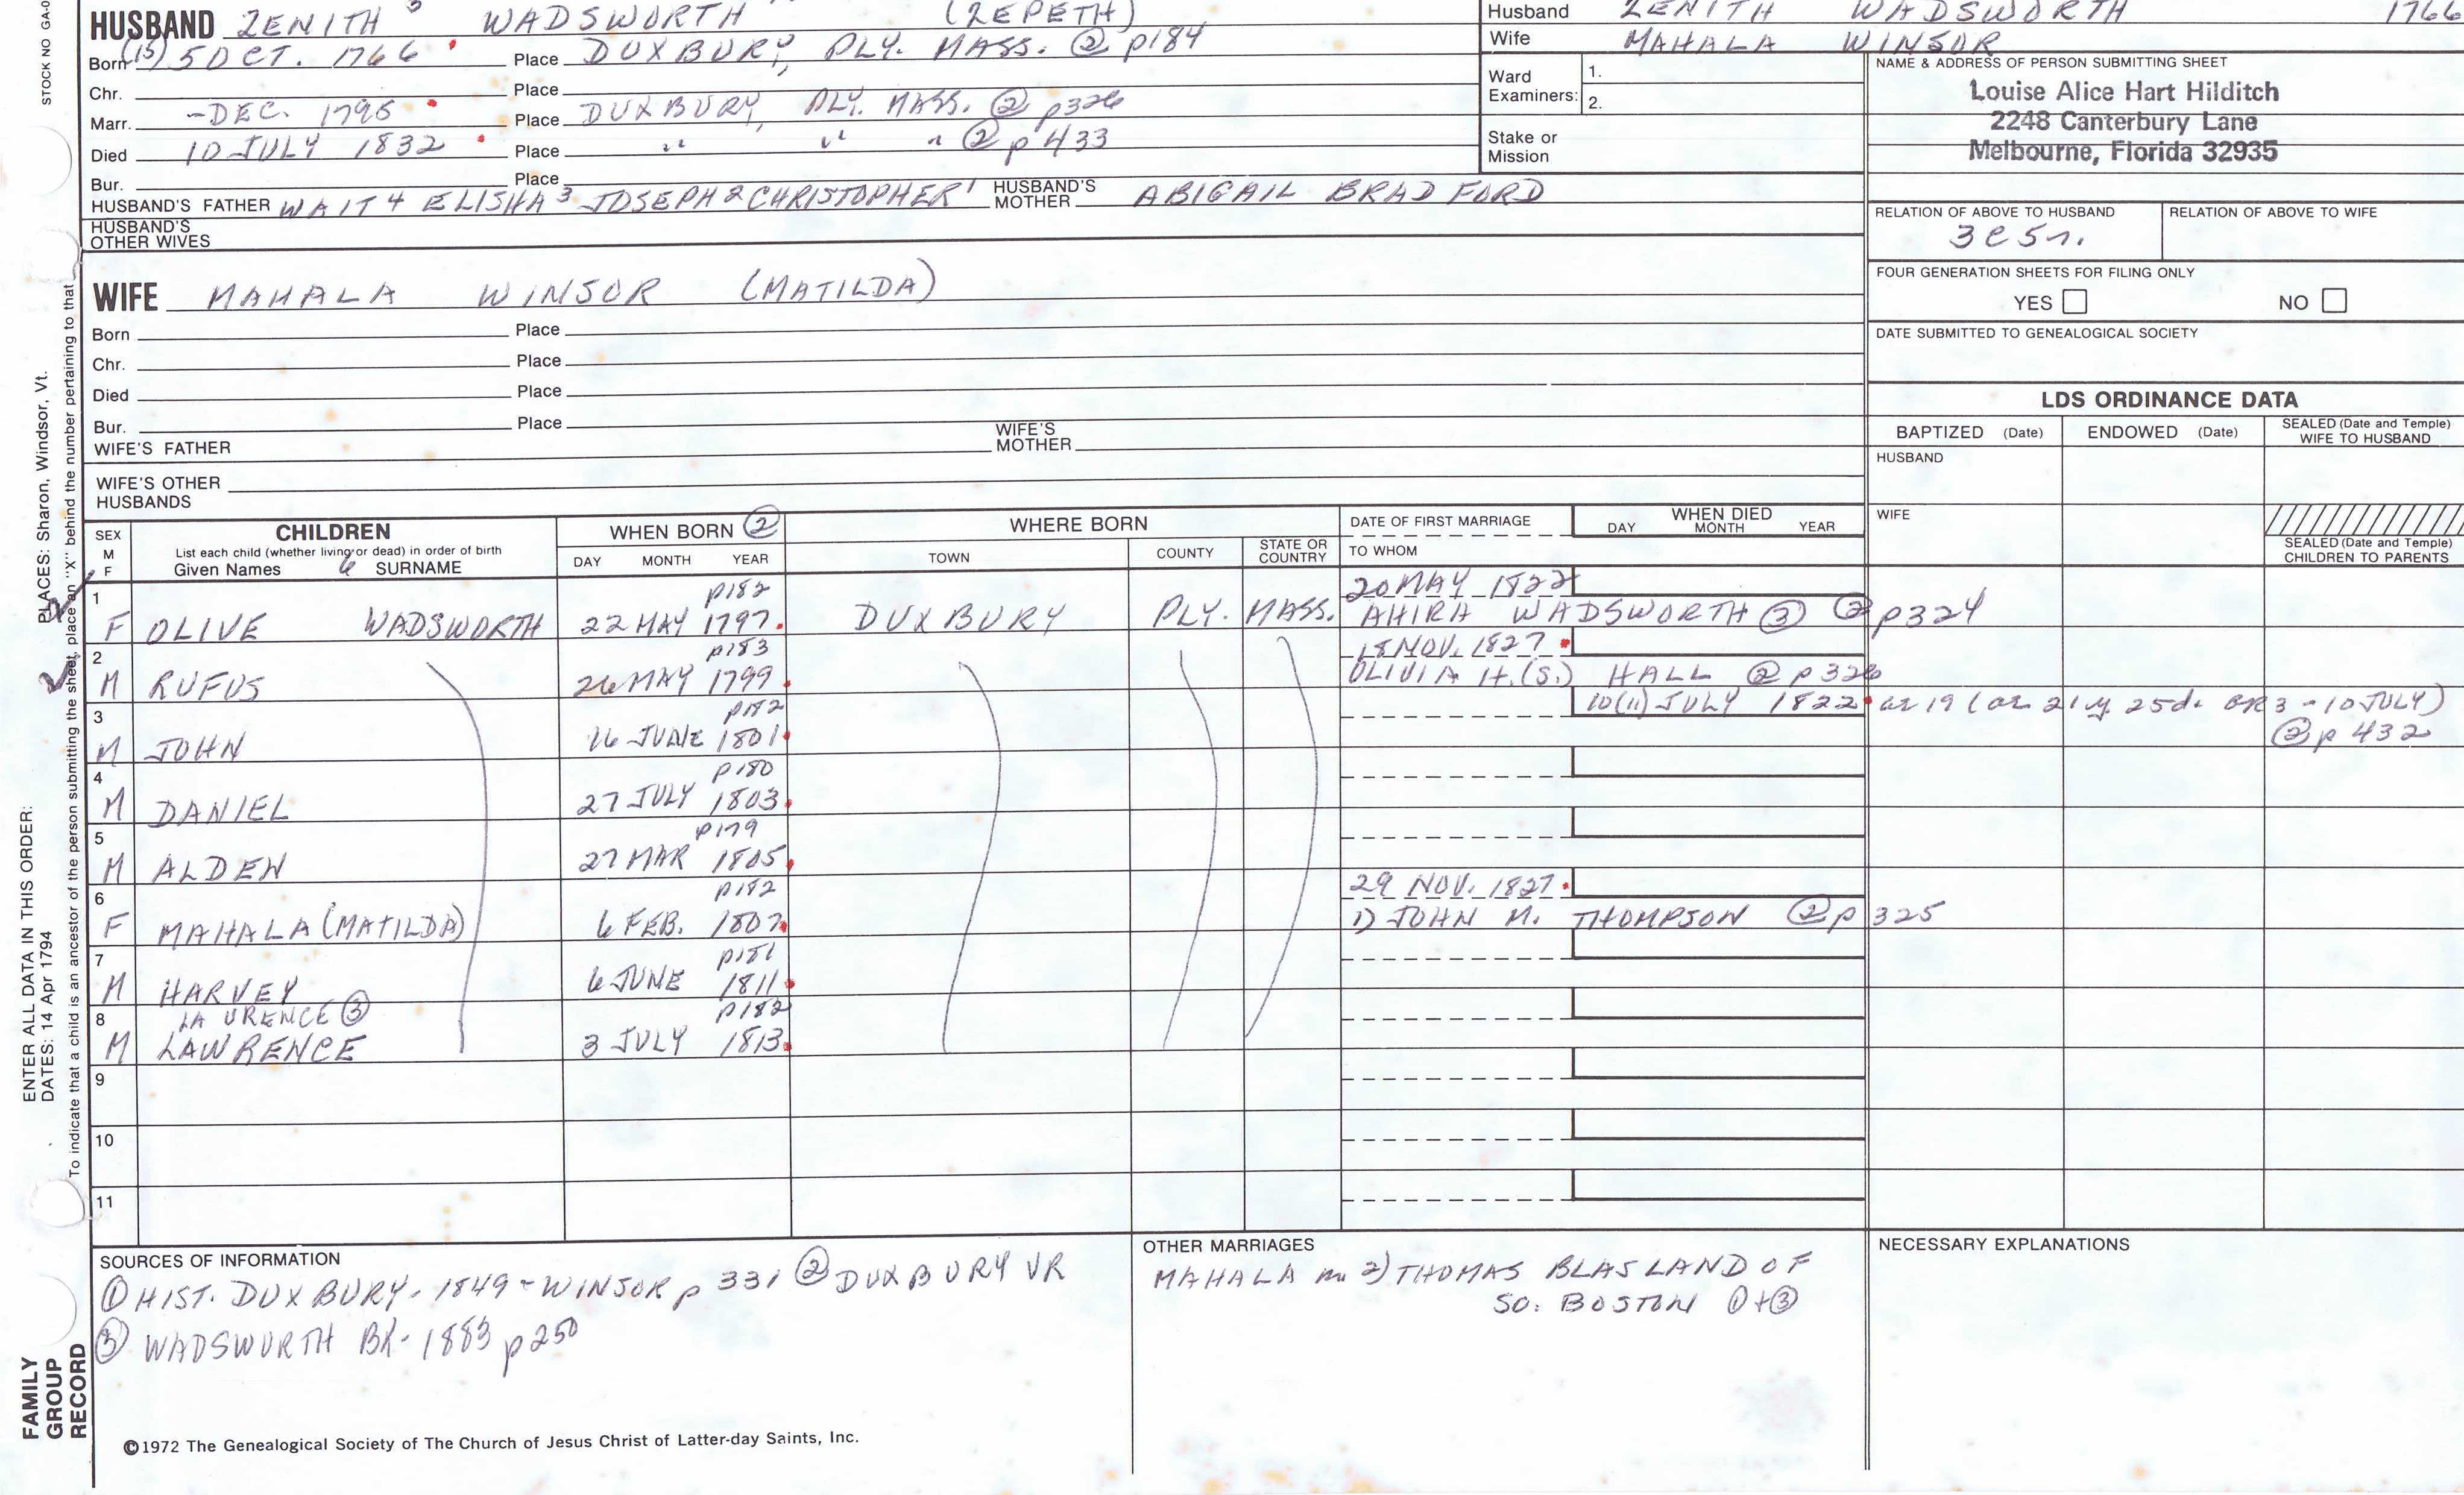 STOCK NO GA-0
HUSBAND ZENITH 5 WADSWORTH (ZEPETH)
Born (15) 5 OCT. 1766 Place DUXBURY, PLY. MASS. ② p184
Chr. Place
Marr. -DEC. 1795 Place DUXBURY, PLY. MASS. ② p326
Died 10 JULY 1832 Place " " " ② p433
Bur. Place
HUSBAND'S FATHER WAIT 4 ELISHA 3 JOSEPH 2 CHRISTOPHER 1 HUSBAND'S MOTHER ABIGAIL BRADFORD
HUSBAND'S OTHER WIVES
Husband ZENITH WADSWORTH 1766
Wife MAHALA WINSOR
Ward Examiners: 1.
2.
Stake or Mission
NAME & ADDRESS OF PERSON SUBMITTING SHEET
Louise Alice Hart Hilditch
2248 Canterbury Lane
Melbourne, Florida 32935
RELATION OF ABOVE TO HUSBAND RELATION OF ABOVE TO WIFE
3C5r.
FOUR GENERATION SHEETS FOR FILING ONLY
YES NO
DATE SUBMITTED TO GENEALOGICAL SOCIETY
WIFE MAHALA WINSOR (MATILDA)
Born Place
Chr. Place
Died Place
Bur. Place
WIFE'S FATHER WIFE'S MOTHER
WIFE'S OTHER HUSBANDS
LDS ORDINANCE DATA
BAPTIZED (Date) ENDOWED (Date) SEALED (Date and Temple) WIFE TO HUSBAND
HUSBAND
WIFE
SEALED (Date and Temple) CHILDREN TO PARENTS
SEX M F CHILDREN WHEN BORN ② WHERE BORN DATE OF FIRST MARRIAGE WHEN DIED
List each child (whether living or dead) in order of birth
Given Names 6 SURNAME DAY MONTH YEAR TOWN COUNTY STATE OR COUNTRY TO WHOM DAY MONTH YEAR
1 p182 20 MAY 1822
F OLIVE WADSWORTH 22 MAY 1797 DUXBURY PLY. MASS. AHIRA WADSWORTH ③ ② p324
2 p183 18 NOV. 1827
M RUFUS 26 MAY 1799 OLIVIA H. (S.) HALL ② p326
3 p182 10(11) JULY 1822 ae 19 (ae 21 y 25d. GR3 - 10 JULY)
M JOHN 16 JUNE 1801 ② p 432
4 p180
M DANIEL 27 JULY 1803
5 p179
M ALDEN 27 MAR 1805
6 p182 29 NOV. 1827
F MAHALA (MATILDA) 6 FEB. 1807 1) JOHN M. THOMPSON ② p 325
7 p181
M HARVEY 6 JUNE 1811
8 LAURENCE ③ p182
M LAWRENCE 3 JULY 1813
9
10
11
SOURCES OF INFORMATION
① HIST. DUXBURY - 1849 - WINSOR p 331 ② DUXBURY VR
③ WADSWORTH BK - 1883 p250
OTHER MARRIAGES
MAHALA m 2) THOMAS BLASLAND OF
SO. BOSTON ① + ③
NECESSARY EXPLANATIONS
©1972 The Genealogical Society of The Church of Jesus Christ of Latter-day Saints, Inc.
ENTER ALL DATA IN THIS ORDER: PLACES: Sharon, Windsor, Vt.
DATES: 14 Apr 1794
To indicate that a child is an ancestor of the person submitting the sheet, place an "X" behind the number pertaining to that
FAMILY GROUP RECORD